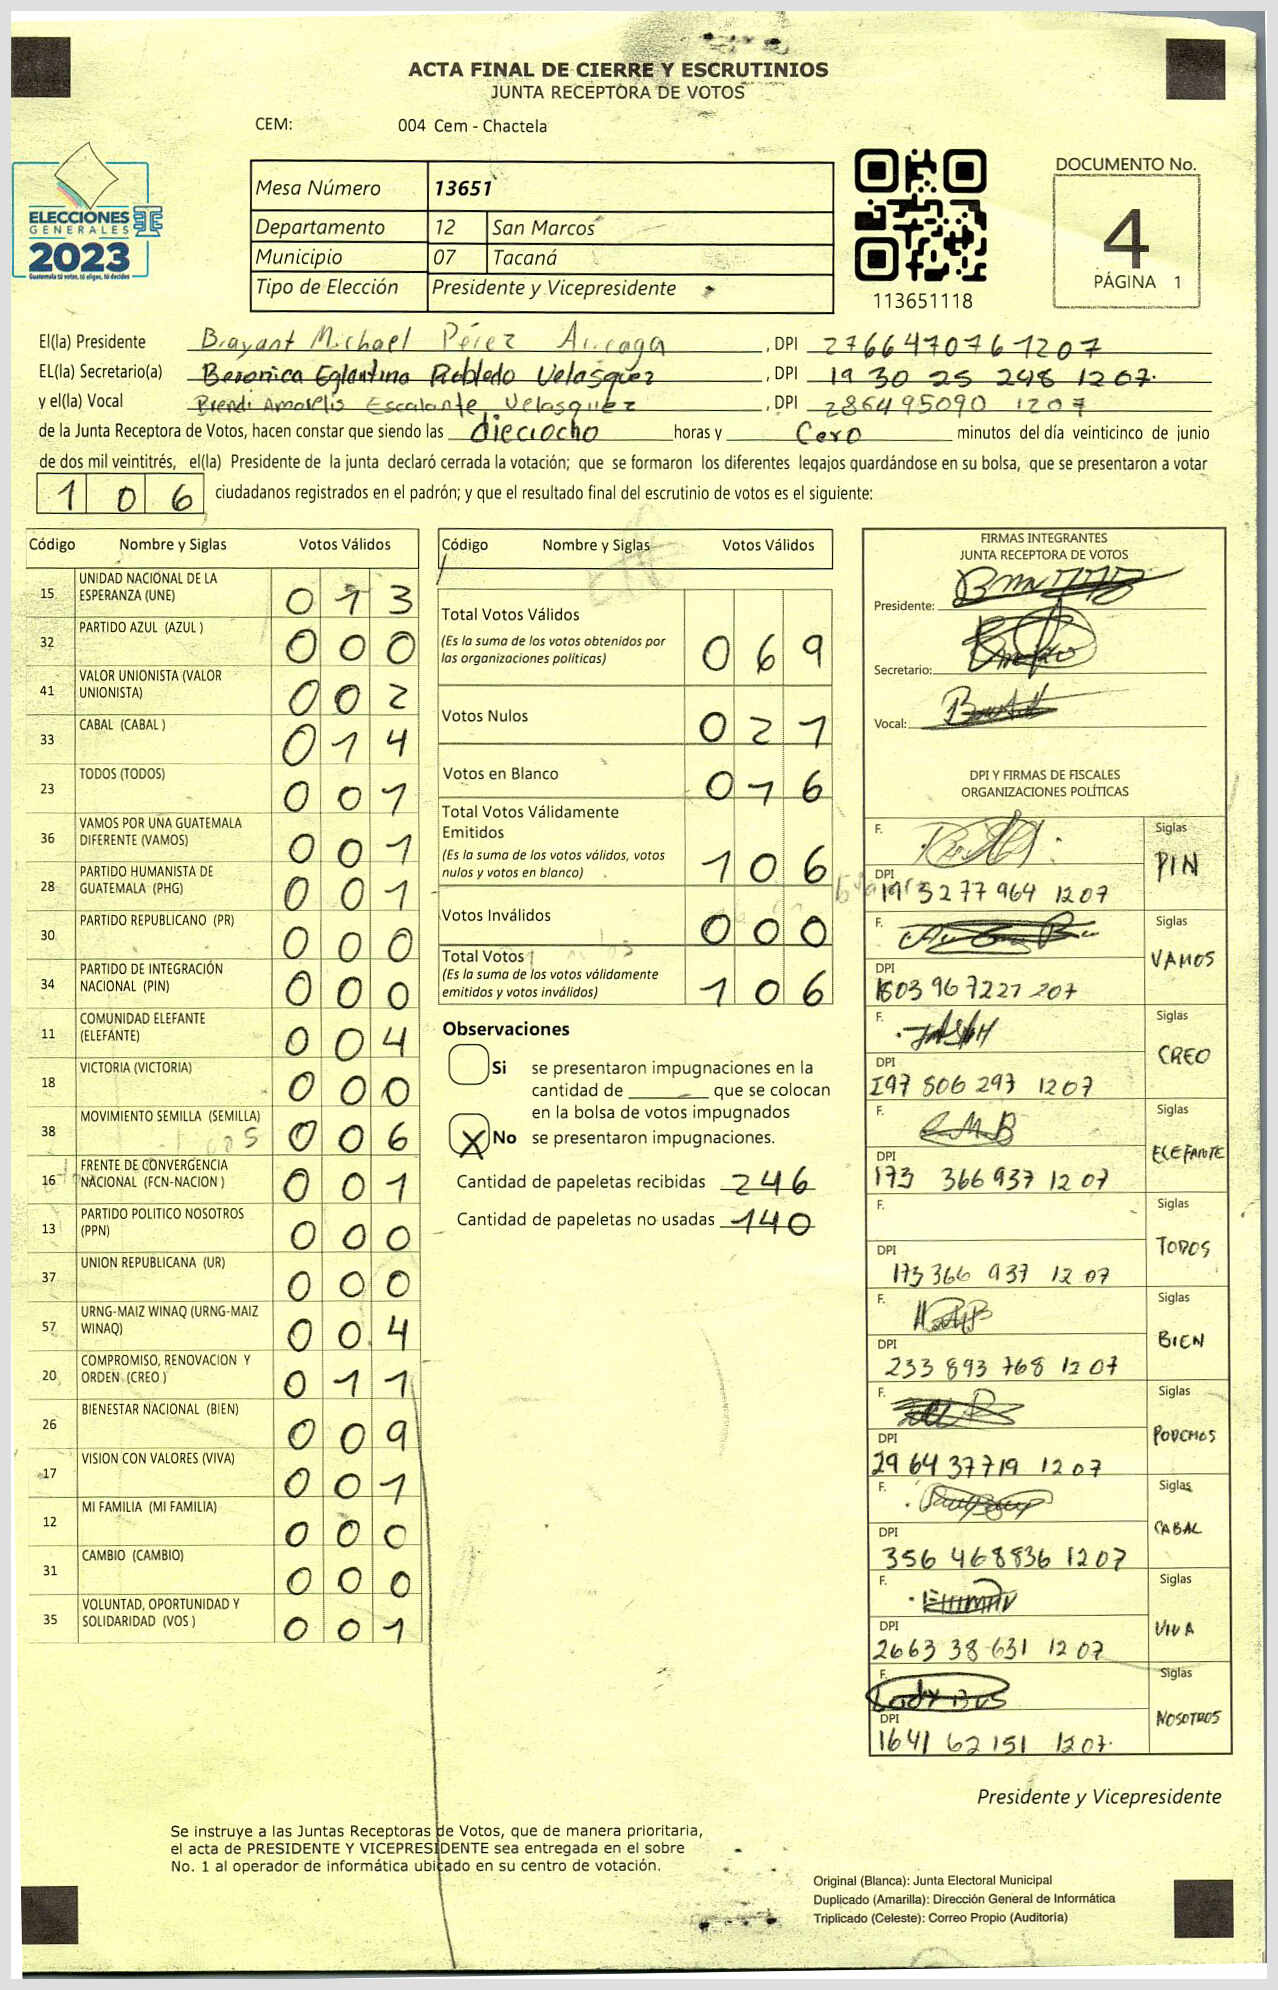 ACTA FINAL DE CIERRE Y ESCRUTINIOS
JUNTA RECEPTORA DE VOTOS
CEM: 004 Cem - Chactela
ELECCIONES
GENERALES
2023
Guatemala tú votas, tú eliges, tú decides
Mesa Número 13651
Departamento 12 San Marcos
Municipio 07 Tacaná
Tipo de Elección Presidente y Vicepresidente
113651118
DOCUMENTO No.
4
PÁGINA 1
El(la) Presidente Brayant Michael Pérez Arreaga , DPI 2766470761207
EL(la) Secretario(a) Beronica Eglantina Robledo Velasquez , DPI 19 30 25 248 1207.
y el(la) Vocal Brendi Amarelis Escalante Velasquez , DPI 286495090 1207
de la Junta Receptora de Votos, hacen constar que siendo las dieciocho horas y Cero minutos del día veinticinco de junio
de dos mil veintitrés, el(la) Presidente de la junta declaró cerrada la votación; que se formaron los diferentes legajos guardándose en su bolsa, que se presentaron a votar
106 ciudadanos registrados en el padrón; y que el resultado final del escrutinio de votos es el siguiente:
Código Nombre y Siglas Votos Válidos
15 UNIDAD NACIONAL DE LA ESPERANZA (UNE) 013
32 PARTIDO AZUL (AZUL ) 000
41 VALOR UNIONISTA (VALOR UNIONISTA) 002
33 CABAL (CABAL ) 014
23 TODOS (TODOS) 001
36 VAMOS POR UNA GUATEMALA DIFERENTE (VAMOS) 001
28 PARTIDO HUMANISTA DE GUATEMALA (PHG) 001
30 PARTIDO REPUBLICANO (PR) 000
34 PARTIDO DE INTEGRACIÓN NACIONAL (PIN) 000
11 COMUNIDAD ELEFANTE (ELEFANTE) 004
18 VICTORIA (VICTORIA) 000
38 MOVIMIENTO SEMILLA (SEMILLA) 006
16 FRENTE DE CONVERGENCIA NACIONAL (FCN-NACION ) 001
13 PARTIDO POLITICO NOSOTROS (PPN) 000
37 UNION REPUBLICANA (UR) 000
57 URNG-MAIZ WINAQ (URNG-MAIZ WINAQ) 004
20 COMPROMISO, RENOVACION Y ORDEN (CREO ) 011
26 BIENESTAR NACIONAL (BIEN) 009
17 VISION CON VALORES (VIVA) 001
12 MI FAMILIA (MI FAMILIA) 000
31 CAMBIO (CAMBIO) 000
35 VOLUNTAD, OPORTUNIDAD Y SOLIDARIDAD (VOS ) 001
Código Nombre y Siglas Votos Válidos
Total Votos Válidos 069
(Es la suma de los votos obtenidos por
las organizaciones politicas)
Votos Nulos 021
Votos en Blanco 016
Total Votos Válidamente
Emitidos 106
(Es la suma de los votos válidos, votos
nulos y votos en blanco)
Votos Inválidos 000
Total Votos 106
(Es la suma de los votos válidamente
emitidos y votos inválidos)
Observaciones
Si se presentaron impugnaciones en la
cantidad de que se colocan
en la bolsa de votos impugnados
X No se presentaron impugnaciones.
Cantidad de papeletas recibidas 246
Cantidad de papeletas no usadas 140
FIRMAS INTEGRANTES
JUNTA RECEPTORA DE VOTOS
Presidente:
Secretario:
Vocal:
DPI Y FIRMAS DE FISCALES
ORGANIZACIONES POLÍTICAS
F. Siglas PIN
DPI 1932 77 964 1207
F. Siglas VAMOS
DPI 1603 96 7227 207
F. Siglas CREO
DPI 197 806 297 1207
F. Siglas ELEFANTE
DPI 173 366 937 1207
F. Siglas TODOS
DPI 173 366 937 1207
F. Siglas BIEN
DPI 233 893 768 1207
F. Siglas PODEMOS
DPI 29 64 37719 1207
F. Siglas CABAL
DPI 356 468836 1207
F. Siglas VIVA
DPI 2663 38 631 1207
F. Siglas NOSOTROS
DPI 1641 62 151 1207.
Presidente y Vicepresidente
Se instruye a las Juntas Receptoras de Votos, que de manera prioritaria,
el acta de PRESIDENTE Y VICEPRESIDENTE sea entregada en el sobre
No. 1 al operador de informática ubicado en su centro de votación.
Original (Blanca): Junta Electoral Municipal
Duplicado (Amarilla): Dirección General de Informática
Triplicado (Celeste): Correo Propio (Auditoría)